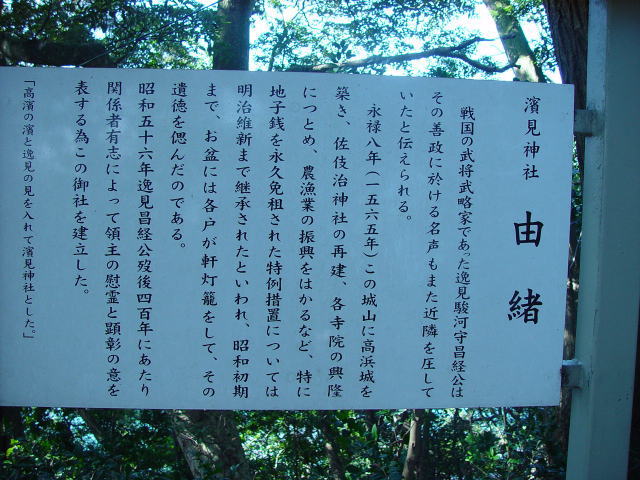 濱見神社 由緒
戦国の武将武略家であった逸見駿河守昌経公は
その善政に於ける名声もまた近隣を圧して
いたと伝えられる。
永禄八年(一五六五年)この城山に高浜城を
築き、佐伎治神社の再建、各寺院の興隆
につとめ、農漁業の振興をはかるなど、特に
地子銭を永久免租された特例措置については
明治維新まで継承されたといわれ、昭和初期
まで、お盆には各戸が軒灯籠をして、その
遺徳を偲んだのである。
昭和五十六年逸見昌経公歿後四百年にあたり
関係者有志によって領主の慰霊と顕彰の意を
表する為この御社を建立した。
「高濱の濱と逸見の見を入れて濱見神社とした。」